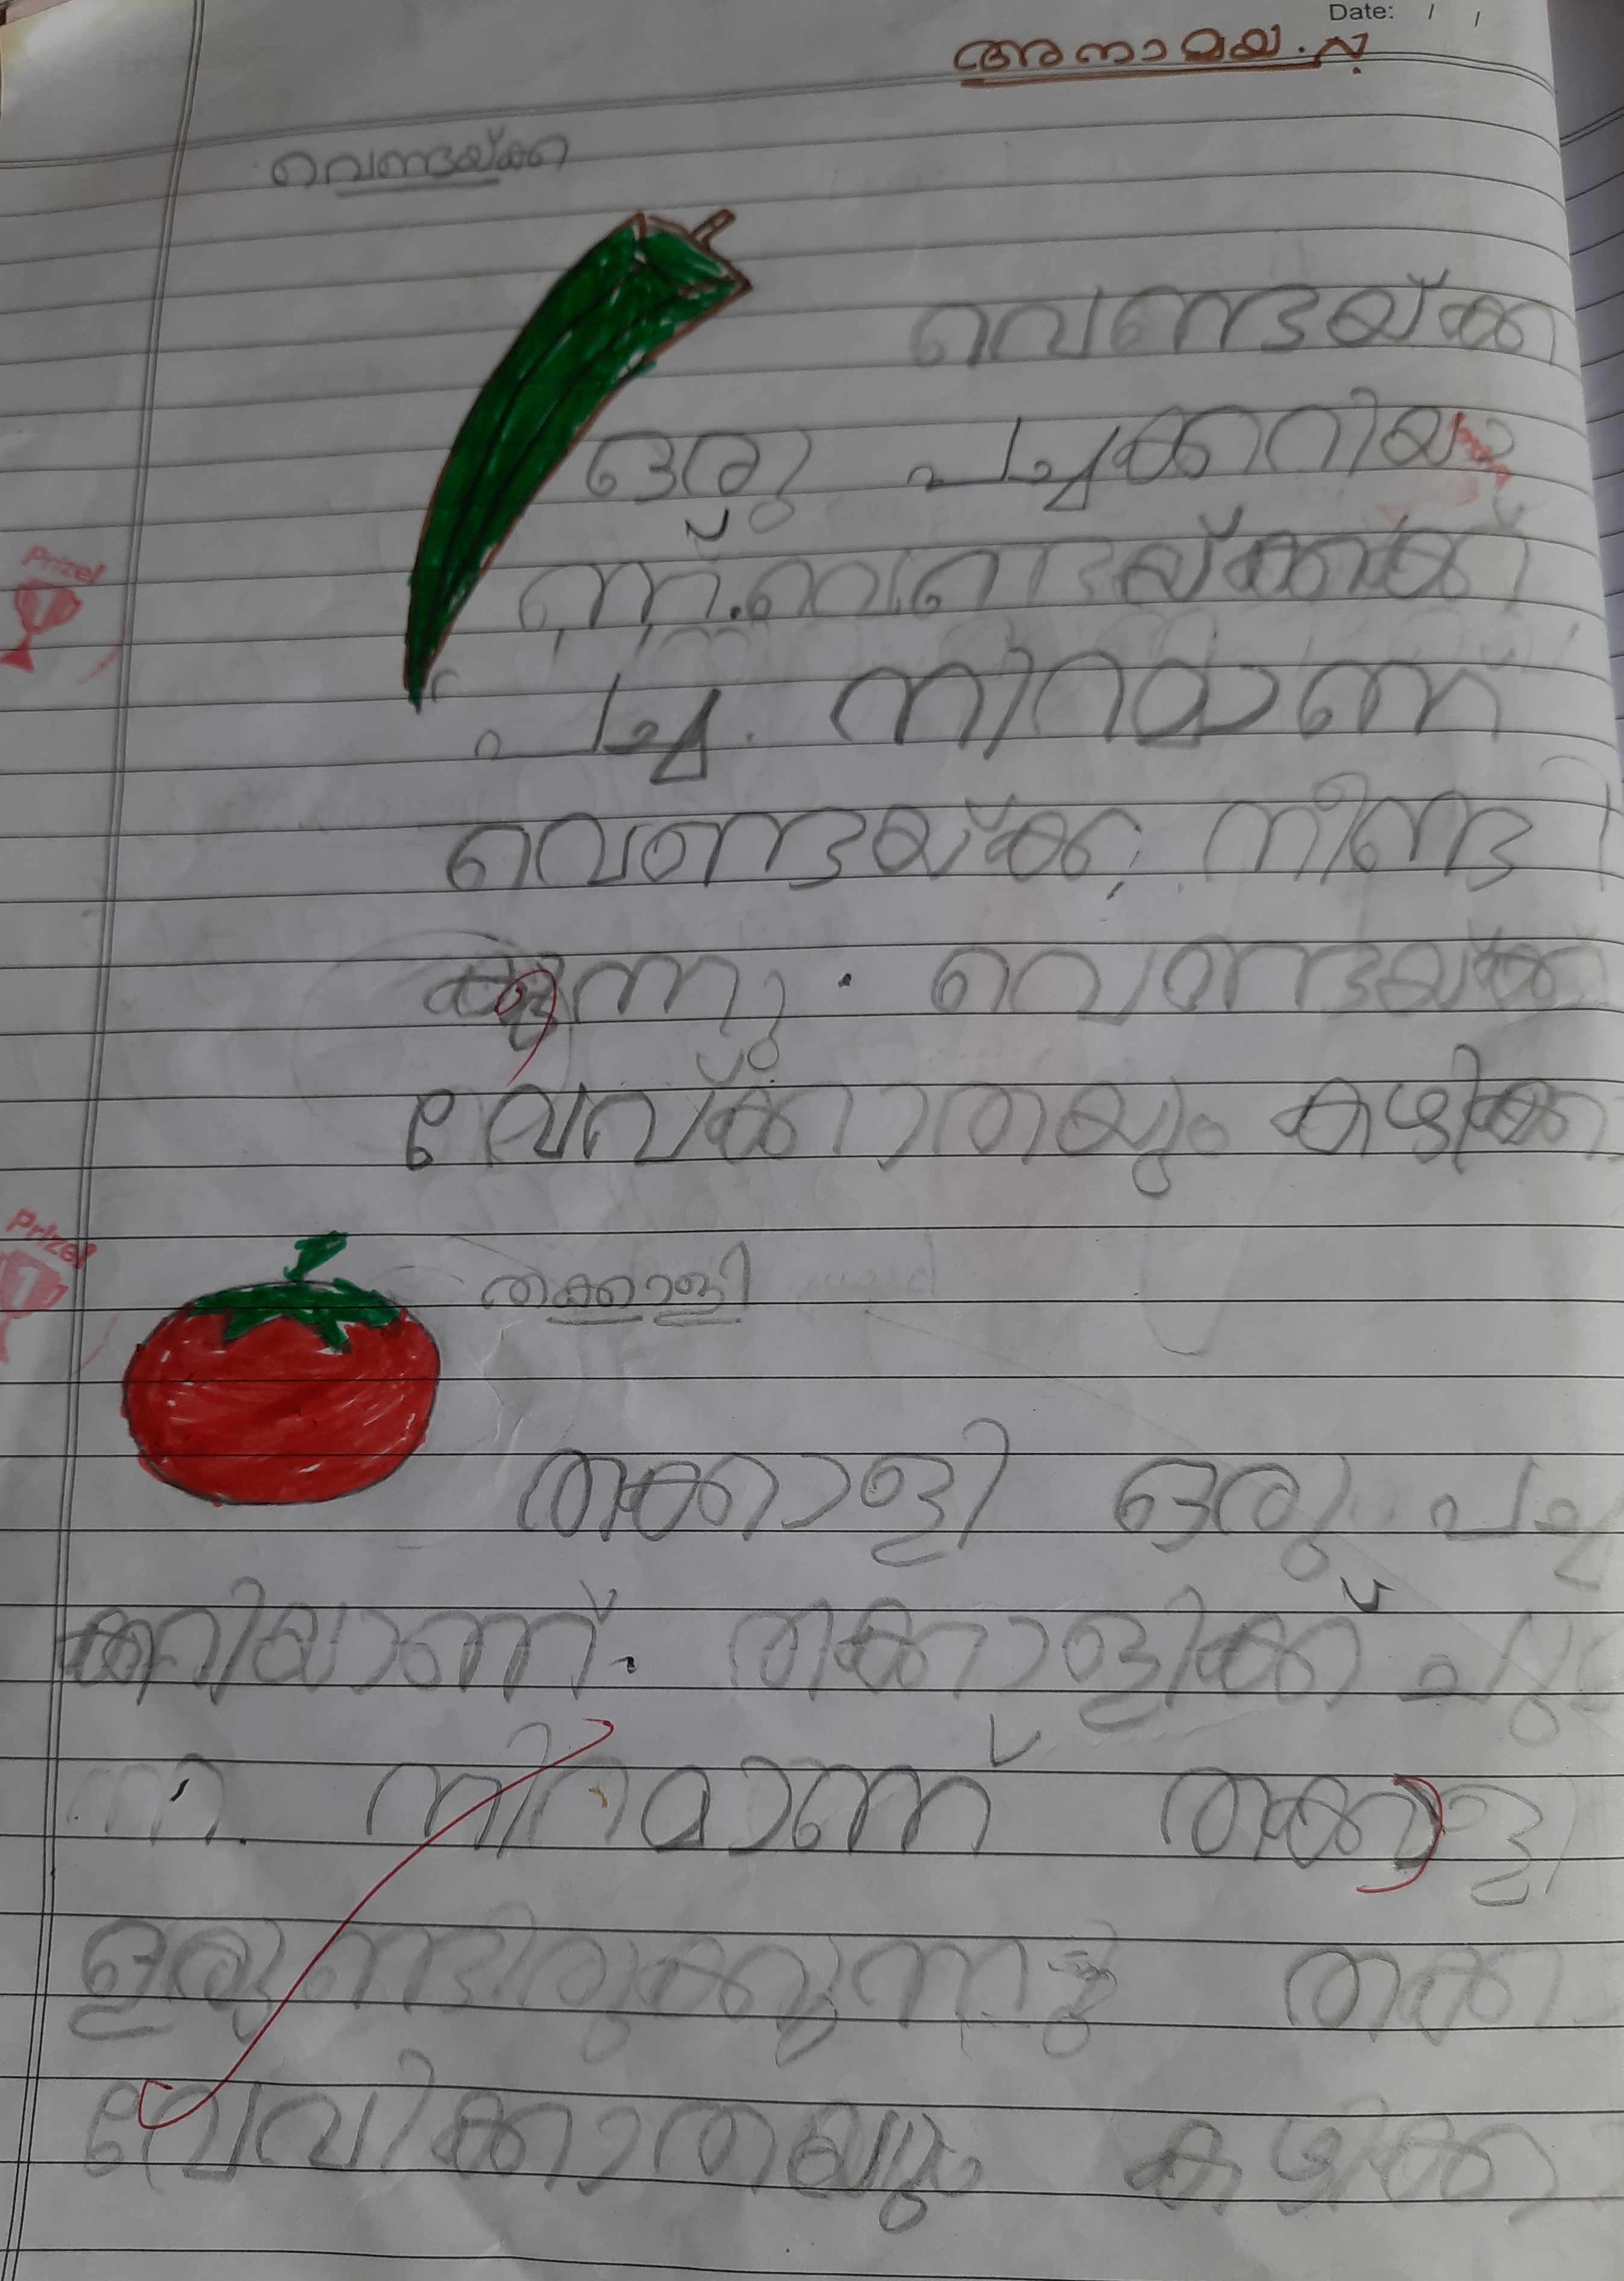 Date: / /
അനാമയ.പു
വെണ്ടയ്ക്ക
വെണ്ടയ്ക്ക
ഒരു പച്ചക്കറിയാ
ണ്. വെണ്ടയ്ക്കക്ക്
Prize!
1
പച്ച. നിറമാണ്
വെണ്ടയ്ക്ക നീണ്ടി
ക്കുന്നു. വെണ്ടയ്ക്ക
വേവ്ക്കാതയും കഴിക്ക
Prize!
1
തക്കാളി
തക്കാളി ഒരു പച്ച
ക്കറിയാണ്. തക്കാളിക്ക് ചുവ
നിറമാണ് തക്കാളി
ഉരുണ്ടിരുക്കുന്നു തക്ക
വേവിക്കാതയും കഴിക്ക